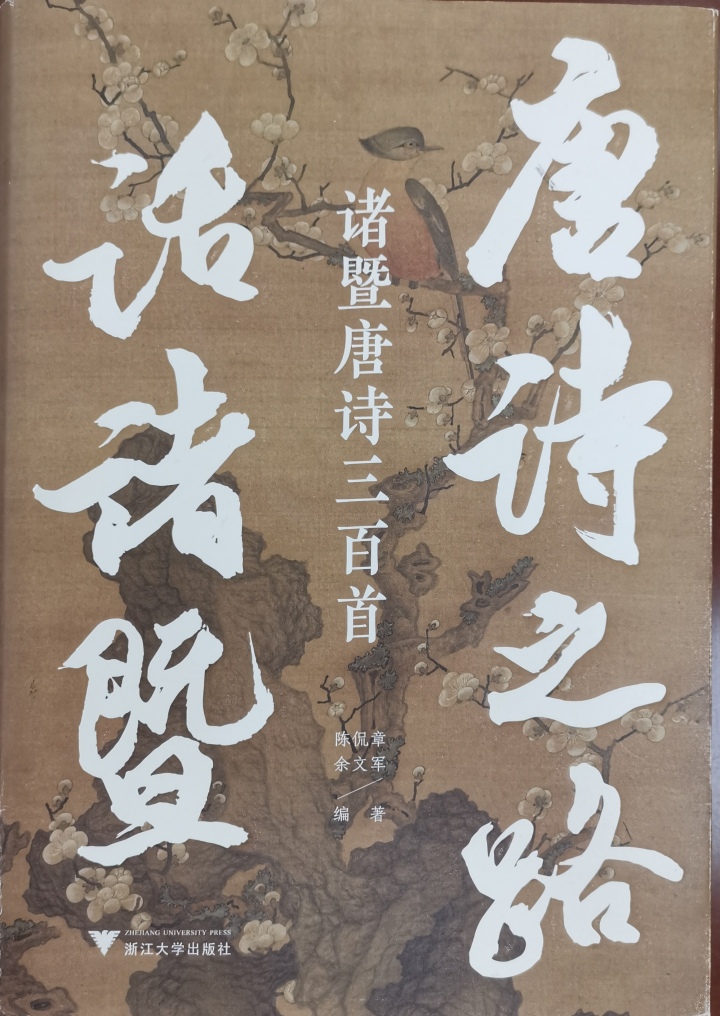 唐诗之路
话诸暨
诸暨唐诗三百首
陈侃章
余文军
编 著
ZHEJIANG UNIVERSITY PRESS
浙江大学出版社